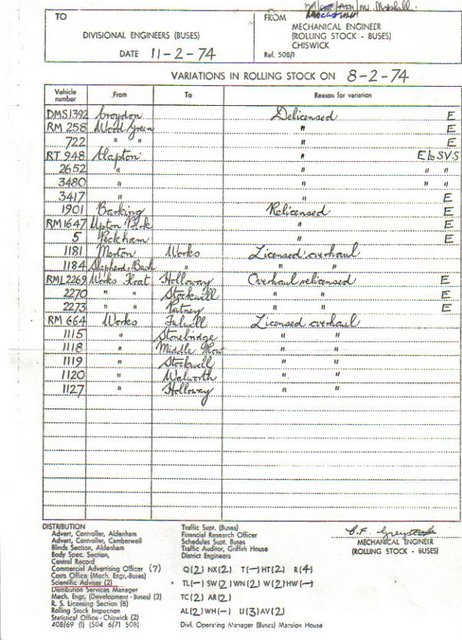 TO
DIVISIONAL ENGINEERS (BUSES)
DATE 11-2-74
FROM
MECHANICAL ENGINEER
(ROLLING STOCK - BUSES)
CHISWICK
Ref. 508/1
VARIATIONS IN ROLLING STOCK ON 8-2-74
Vehicle number From To Reason for variation
DMS1392 Croydon Delicensed E
RM 258 Wood Green " E
722 " " " E
RT 948 Clapton " E to SVS
2652 " " " "
3480 " " " "
3417 " " E
1901 Barking Relicensed E
RM1647 Upton Park " E
5 Peckham " E
1181 Merton Works Licensed overhaul
1184 Shepherds Bush " " "
RML2269 Works Float Holloway Overhaul relicensed E
2270 " " Stockwell " " E
2273 " " Putney " " E
RM 664 Works Fulwell Licensed overhaul
1115 " Stonebridge " "
1118 " Middle Row " "
1119 " Stockwell " "
1120 " Walworth " "
1127 " Holloway " "
DISTRIBUTION
Advert. Controller, Aldenham
Advert. Controller, Camberwell
Blinds Section, Aldenham
Body Spec. Section,
Central Record
Commercial Advertising Officer (7)
Costs Office (Mech. Engr. Buses)
Scientific Adviser (2)
Distribution Services Manager
Mech. Engr. (Development - Buses) (2)
R. S. Licensing Section (8)
Rolling Stock Inspection
Statistical Office - Chiswick (2)
408/69 (1) (504 6/71 508)
Traffic Supt. (Buses)
Financial Research Officer
Schedules Supt. Buses
Traffic Auditor, Griffith House
District Engineers
Q(2) NX(2) T(-) HT(2) R(4)
TL(-) SW(2) WN(2) W(2) HW(-)
TC(2) AR(2)
AL(2) WH(-) U(3) AV(2)
Divl. Operating Manager (Buses) Mansion House
MECHANICAL ENGINEER
(ROLLING STOCK - BUSES)